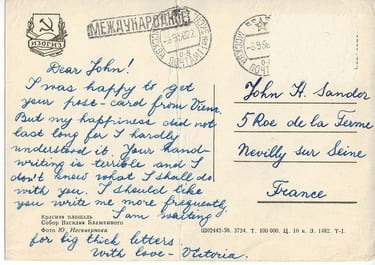 ИЗОГИЗ
МЕЖДУНАРОДНОЕ
МОСКВА
ПОЧТАМТ
Dear John!
I was happy to get
your post-card from Viena.
But my happiness did not
last long for I hardly
understood it. Your hand-
writing is terrible and I
don't know what I shall do
with you. I should like
you write me more frequently.
I am waiting
for big thick letters.
With love - Victoria.
Красная площадь
Собор Василия Блаженного
Фото Ю. Нескверкова
John H. Sandor
5 Rue de la Ferme
Nevilly sur Seine
France
Ш02442-56. 3734. Т. 100 000. Ц. 10 к. З. 1462. Т-1.